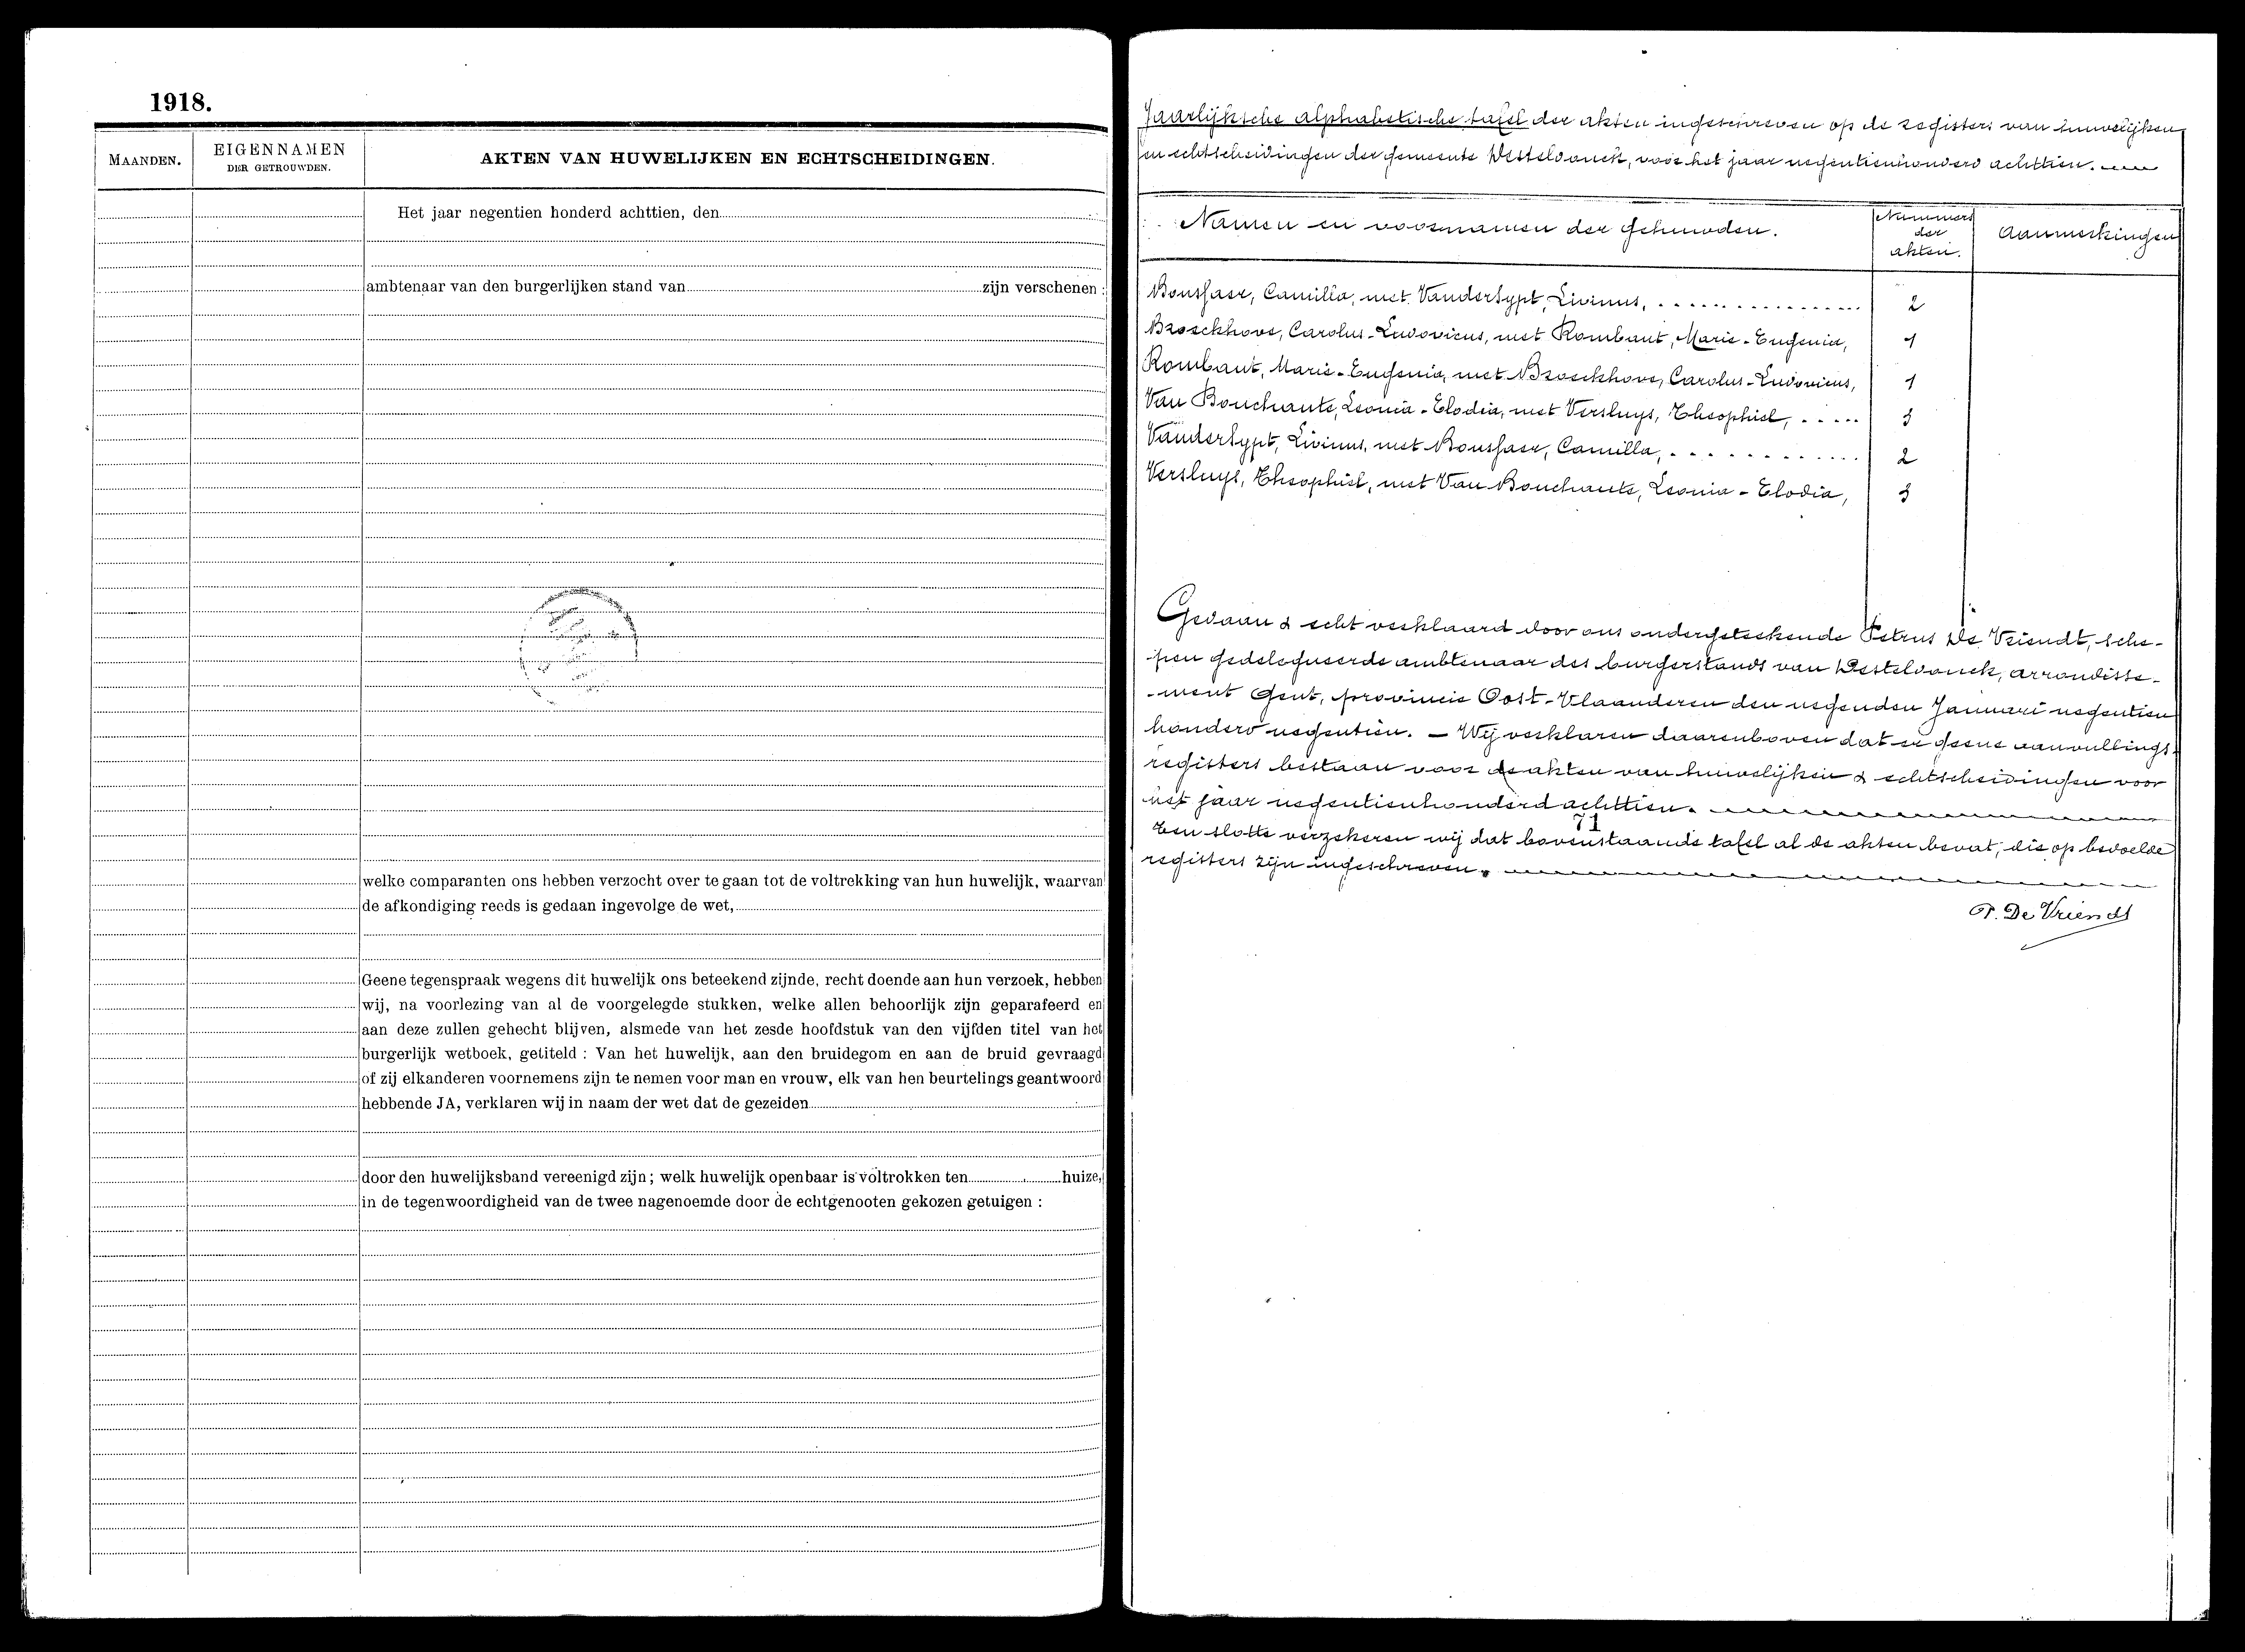 1918.
MAANDEN.
EIGENNAMEN
DER GETROUWDEN.
AKTEN VAN HUWELIJKEN EN ECHTSCHEIDINGEN.
Het jaar negentien honderd achttien, den
ambtenaar van den burgerlijken stand van zijn verschenen :
welke comparanten ons hebben verzocht over te gaan tot de voltrekking van hun huwelijk, waarvan
de afkondiging reeds is gedaan ingevolge de wet,
Geene tegenspraak wegens dit huwelijk ons beteekend zijnde, recht doende aan hun verzoek, hebben
wij, na voorlezing van al de voorgelegde stukken, welke allen behoorlijk zijn geparafeerd en
aan deze zullen gehecht blijven, alsmede van het zesde hoofdstuk van den vijfden titel van het
burgerlijk wetboek, getiteld : Van het huwelijk, aan den bruidegom en aan de bruid gevraagd
of zij elkanderen voornemens zijn te nemen voor man en vrouw, elk van hen beurtelings geantwoord
hebbende JA, verklaren wij in naam der wet dat de gezeiden
door den huwelijksband vereenigd zijn ; welk huwelijk openbaar is voltrokken ten huize,
in de tegenwoordigheid van de twee nagenoemde door de echtgenooten gekozen getuigen :
Jaarlijksche alphabetische tafel der akten ingeschreven op de registers van huwelijken
en echtscheidingen der gemeente Desteldonck, voor het jaar negentienhonderd achttien.
Namen en voornamen der gehuwden.
Nummers
der
akten.
Aanmerkingen
Bousfaer, Camilla, met Vandersypt, Livinus, 2
Broeckhove, Carolus-Ludovicus, met Rombaut, Marie-Eugenia, 1
Rombaut, Marie-Eugenia, met Broeckhove, Carolus-Ludovicus, 1
Van Bouchaute, Leonia-Elodia, met Versluys, Theophiel, 3
Vandersypt, Livinus, met Bousfaer, Camilla, 2
Versluys, Theophiel, met Van Bouchaute, Leonia-Elodia, 3
Gedaan & echt verklaard door ons ondergeteekende Petrus De Vriendt, sche-
pen gedelegueerde ambtenaar des burgerstands van Desteldonck, arrondisse-
-ment Gent, provincie Oost-Vlaanderen den negenden Januari negentien
honderd negentien. — Wij verklaren daarenboven dat er geene aanvullings-
registers bestaan voor de akten van huwelijken & echtscheidingen voor
het jaar negentienhonderd achttien.
71
Ten slotte verzekeren wij dat bovenstaande tafel al de akten bevat, die op bedoelde
registers zijn ingeschreven.
P. De Vriendt